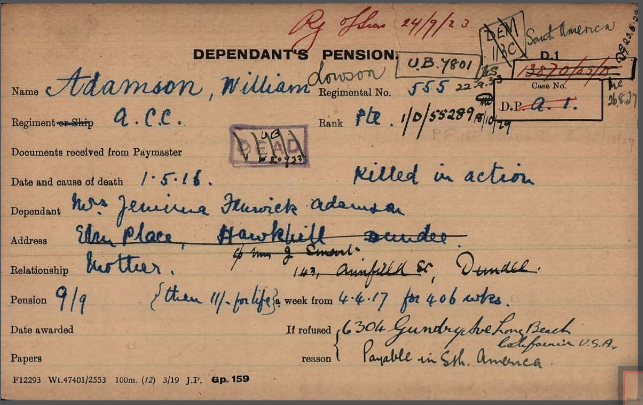 24/9/23
DEM
1BC
South America
DEPENDANT'S PENSION.
U.B.7801
D.1
Name Adamson, William Lowson
Regimental No. 555
Case No.
D.P.
Regiment or Ship A.C.C.
Rank Pte. 1/D/55289
Documents received from Paymaster
DEAD
Date and cause of death 1.5.18. Killed in action
Dependant Mrs Jemima Fenwick Adamson
Address Elm Place, Hawkhill Dundee.
143, Annfield St, Dundee.
Relationship Mother.
Pension 9/9 {then 11/- for life} a week from 4.4.17 for 406 wks.
Date awarded
If refused 6304 Gundry Ave Long Beach
California U.S.A.
Papers
reason Payable in Sth. America
F12293 Wt.47401/2553 100m. (12) 3/19 J.P. Gp. 159